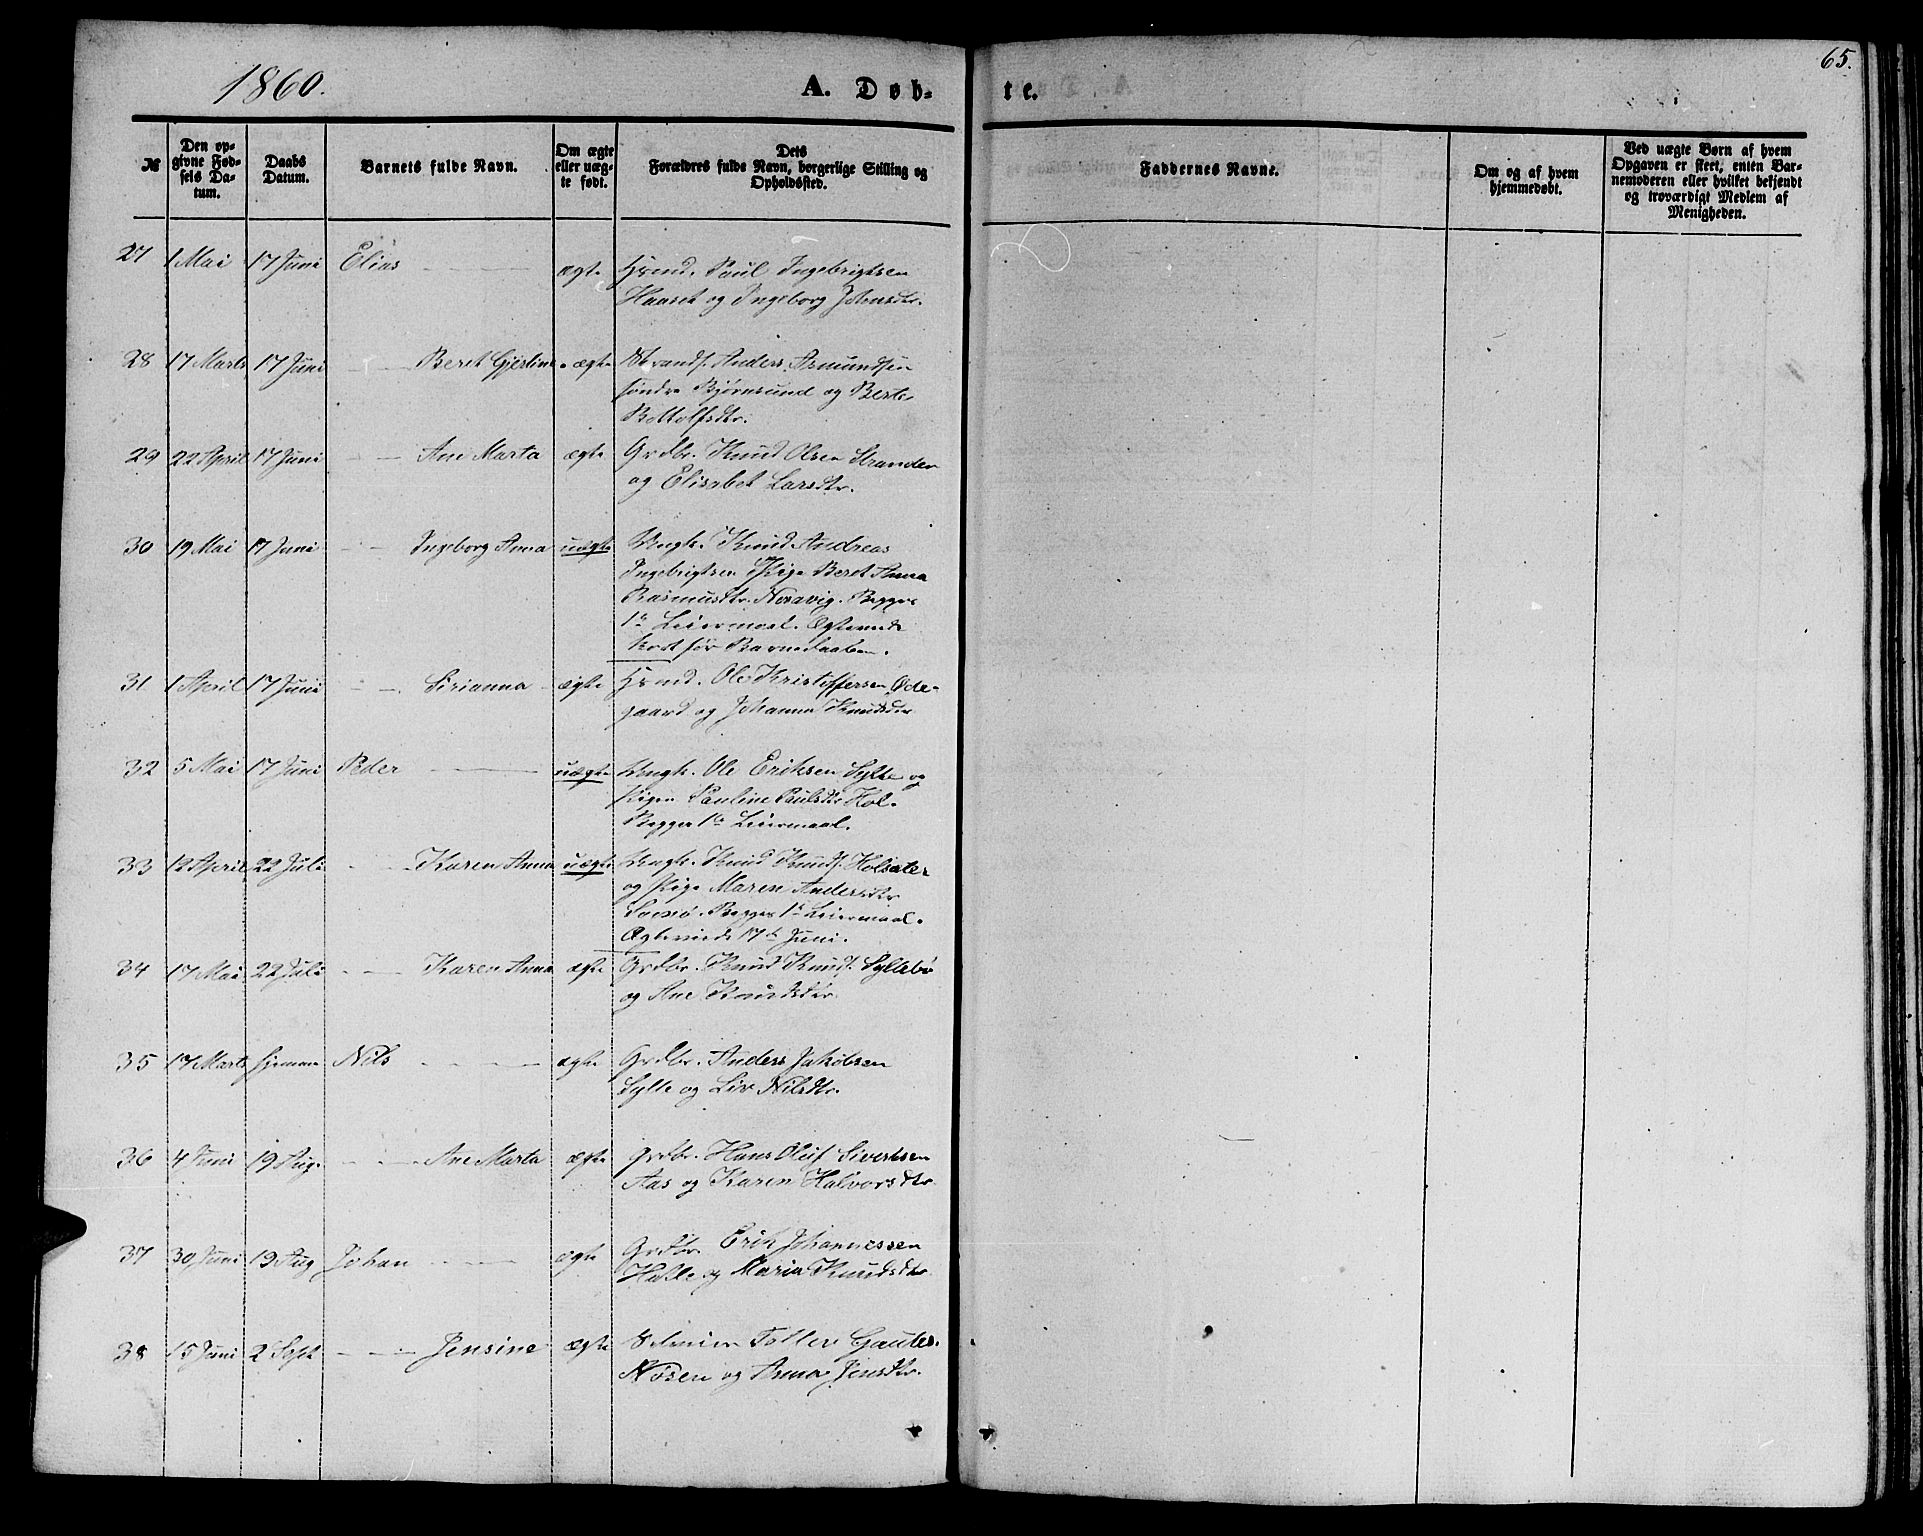 1860.
A. Døb-
te.
65.
№
Den op-
givne Fød-
sels Da-
tum.
Daabs
Datum.
Barnets fulde Navn.
Om ægte
eller uæg-
te født.
Dets
Forældres fulde Navn, borgerlige Stilling og
Opholdssted.
Faddernes Navne.
Om og af hvem
hjemmedøbt.
Ved uægte Børn af hvem
Opgaven er skeet, enten Bar-
nemoderen eller hvilket bekjendt
og troværdigt Medlem af
Menigheden.
27 1 Mai 17 Juni Elias ægte Hsmd. Paul Ingebrigtsen
og Ingeborg Johnsdtr.
28 17 Marts 17 Juni Beret Gjertine ægte Strands. Anders Asmundsen
søndre Bjørnsund og Berte
Bottolfsdtr.
29 22 April 17 Juni Ane Marta ægte Grdbr. Knud Olsen Stranden
og Elisabet Larsdtr.
30 19 Mai 17 Juni Ingeborg Anna uægte Ungk. Knud Andreas
Ingebrigtsen Pige Beret Anna
Rasmusdtr. Nesavig. Begges
1te Leiermaal. Ægteviede
kort før Barnedaaben.
31 1 April 17 Juni Sirianna ægte Hsmd. Ole Kristoffersen Øde-
gaard og Johanna Knudsdtr
32 5 Mai 17 Juni Peder uægte Ungk. Ole Eriksen Sylte og
Pigen Pauline Paulsdtr Hol.
Begges 1te Leiermaal.
33 12 April 22 Juli Karen Anna uægte Ungk. Knud Knuds. Holsæter
og Pige Maren Andersdtr
Begges 1te Leiermaal.
Ægteviede 17de Juni.
34 17 Mai 22 Juli Karen Anna ægte Grdbr. Knud Knuds. Syltebø
og Ane Knudsdtr
35 17 Marts hjemme Nils ægte Grdbr. Anders Jakobsen
Sylte og Liv Nilsdtr.
36 4 Juni 19 Aug. Ane Marta ægte Grdbr. Hans Oluf Sivertsen
Aas og Karen Halvorsdtr
37 30 Juni 19 Aug Johan ægte Grdbr. Erik Johannessen
og Maria Knudsdtr
38 15 Juni 2 Sept Jensine ægte Tollev Gauter.
Nøsen og Anna Jensdtr.